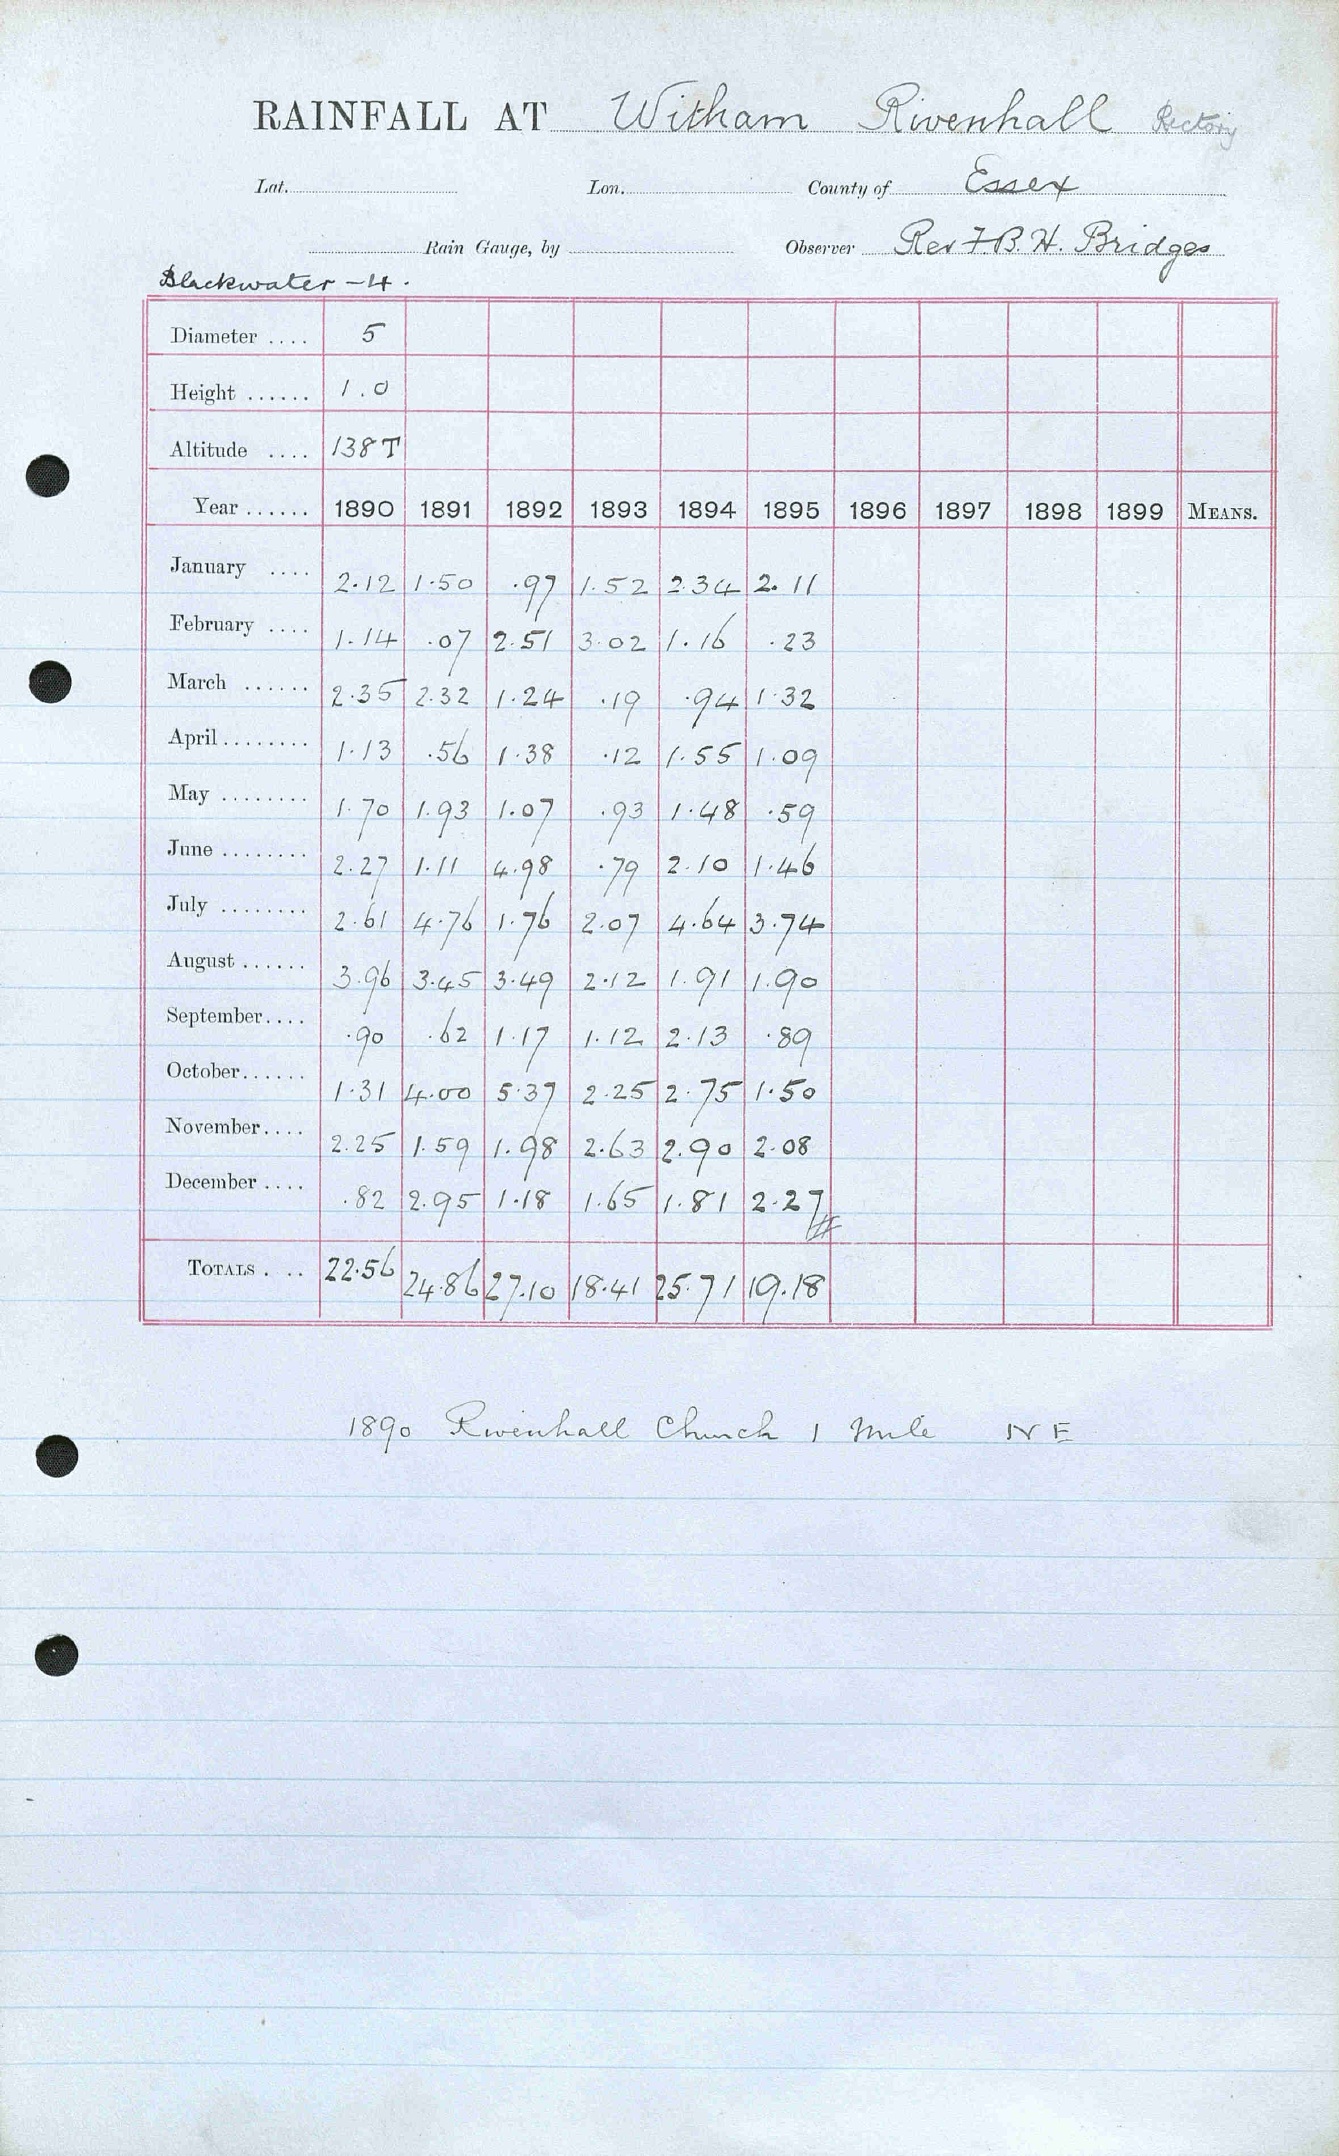 RAINFALL AT Witham Rivenhall Rectory
Lat. Lon. County of Essex
Rain Gauge, by Observer Rev F.B.H. Bridges
Blackwater - 4.
Diameter .... 5
Height ...... 1.0
Altitude .... 138T
Year ...... 1890 1891 1892 1893 1894 1895 1896 1897 1898 1899 MEANS.
January .... 2.12 1.50 .97 1.52 2.34 2.11
February .... 1.14 .07 2.51 3.02 1.16 .23
March ...... 2.35 2.32 1.24 .19 .94 1.32
April ........ 1.13 .56 1.38 .12 1.55 1.09
May ........ 1.70 1.93 1.07 .93 1.48 .59
June ........ 2.27 1.11 4.98 .79 2.10 1.46
July ........ 2.61 4.76 1.76 2.07 4.64 3.74
August ...... 3.96 3.45 3.49 2.12 1.91 1.90
September.... .90 .62 1.17 1.12 2.13 .89
October...... 1.31 4.00 5.37 2.25 2.75 1.50
November.... 2.25 1.59 1.98 2.63 2.90 2.08
December .... .82 2.95 1.18 1.65 1.81 2.27
TOTALS . .. 22.56 24.86 27.10 18.41 25.71 19.18
1890 Rivenhall Church 1 Mile NE